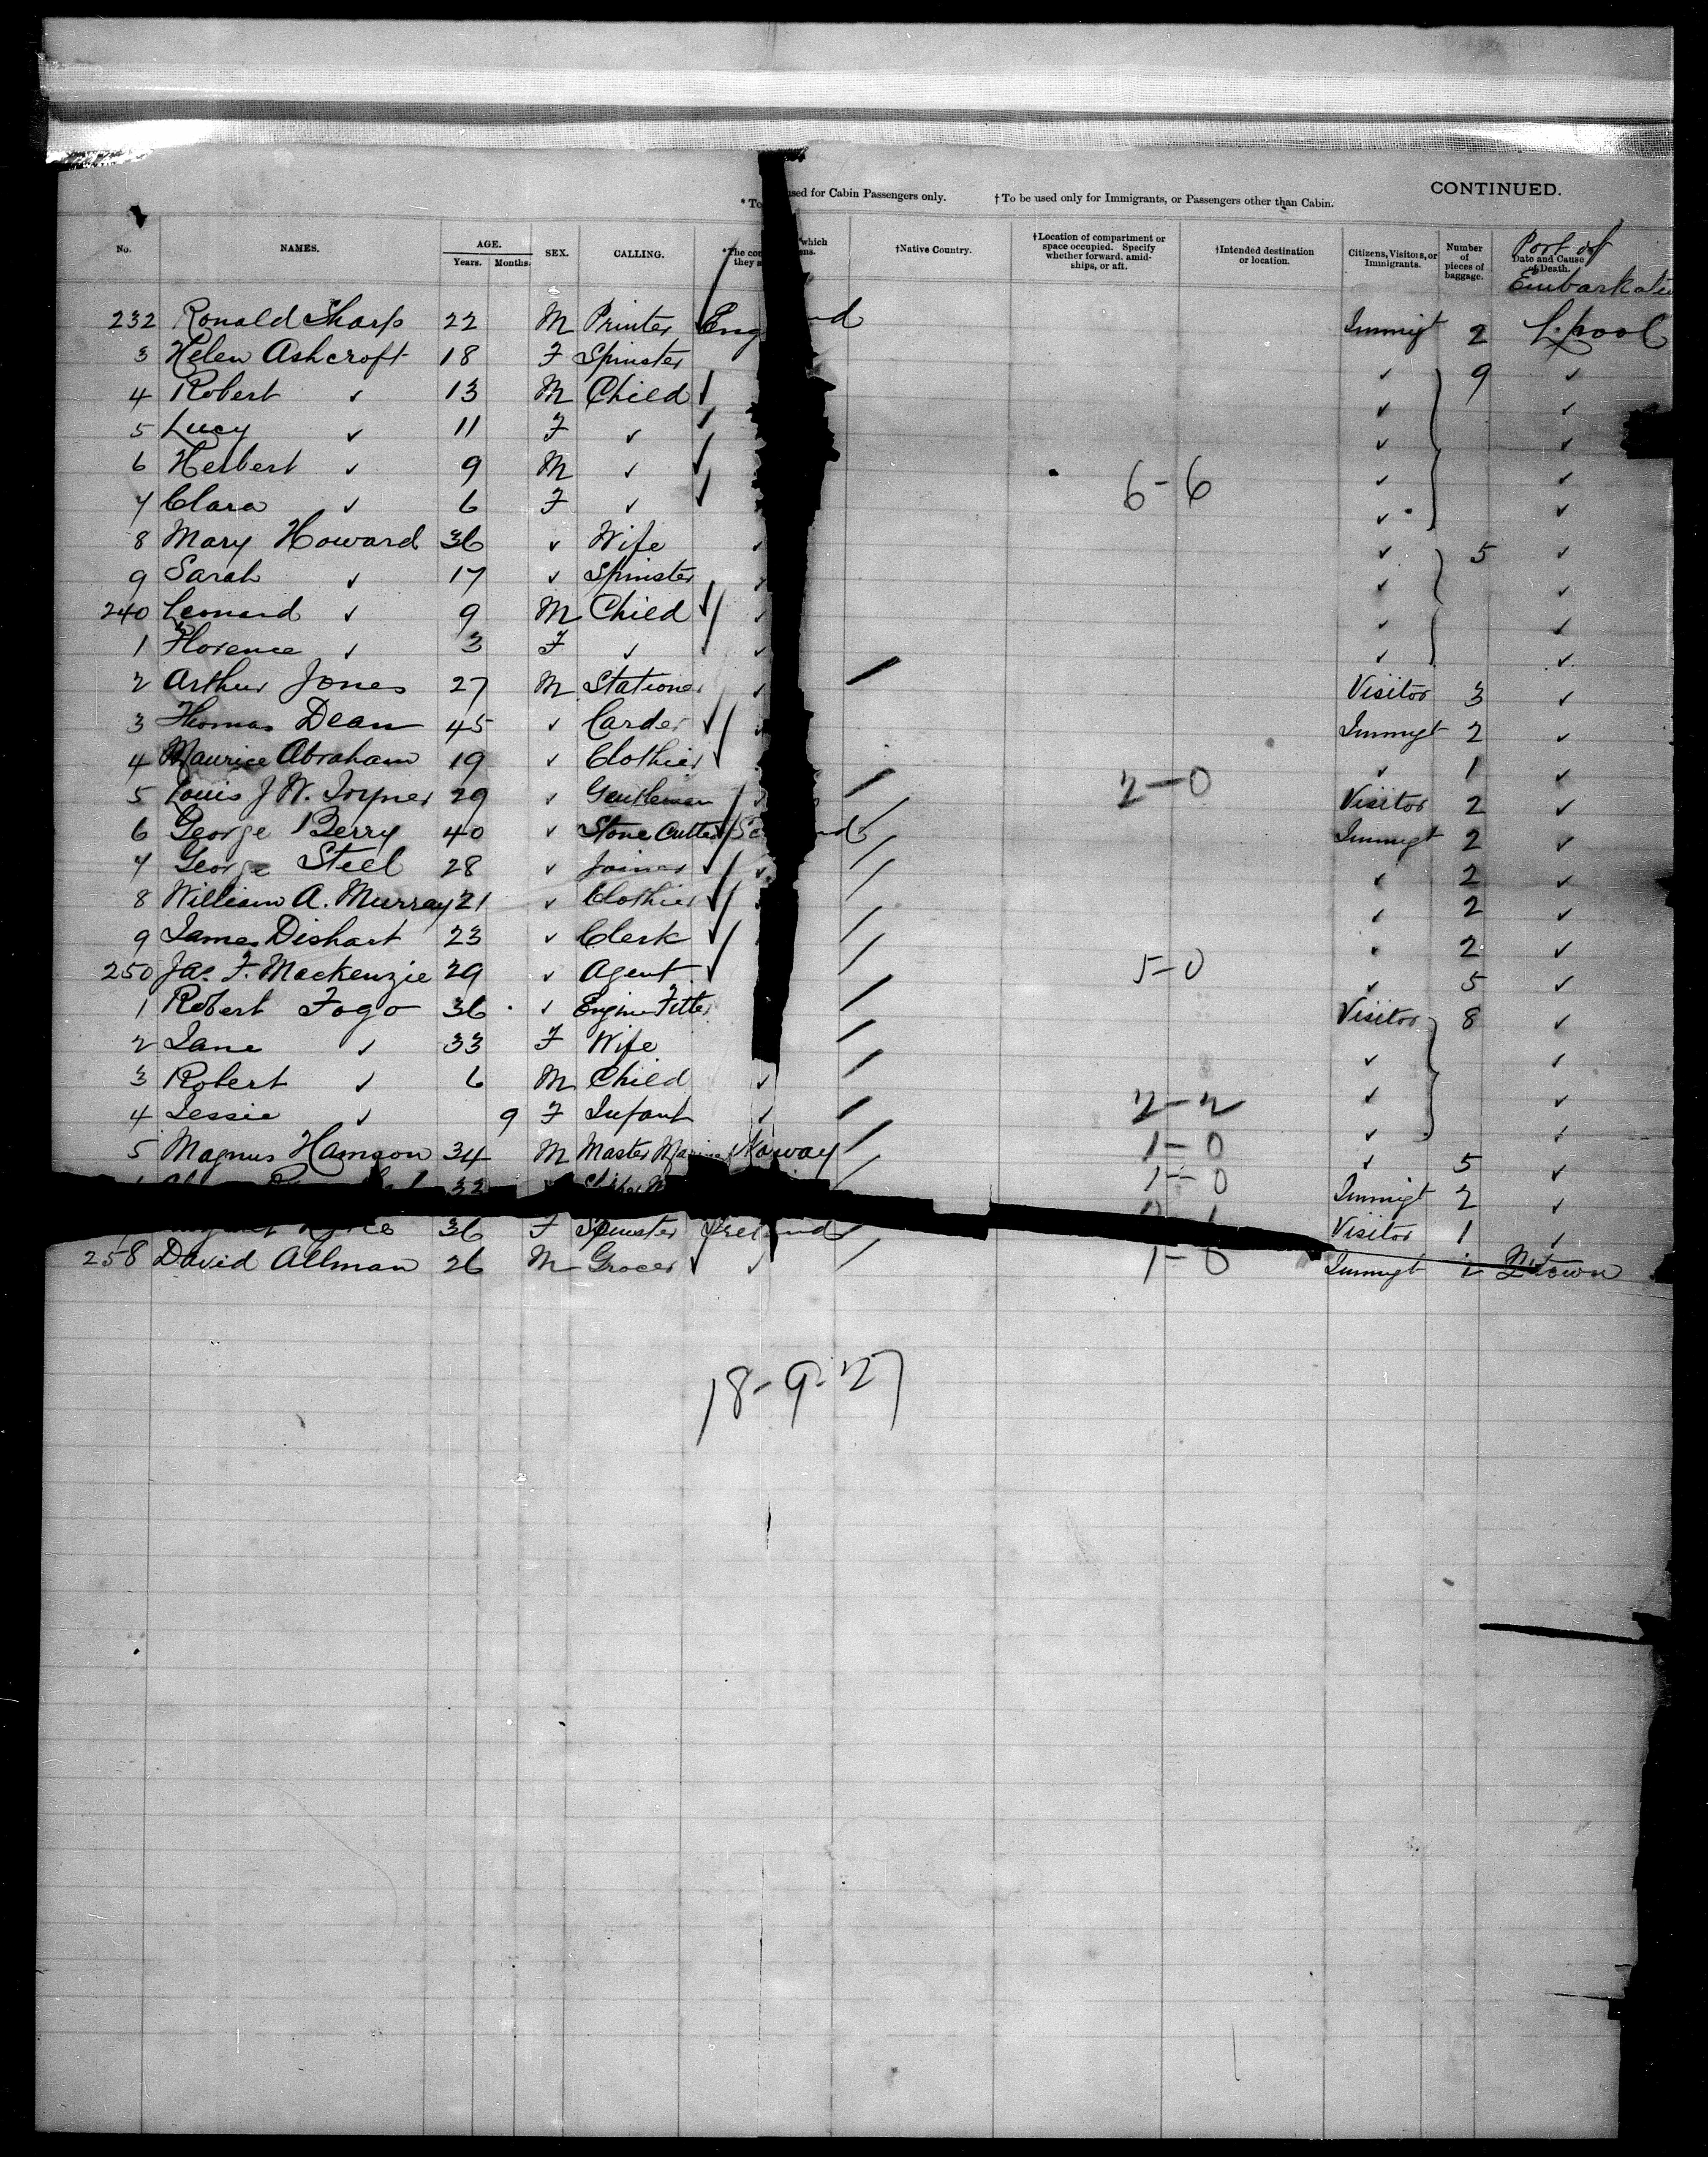 CONTINUED.
* To used for Cabin Passengers only. † To be used only for Immigrants, or Passengers other than Cabin.
No. NAMES. AGE. Years. Months. SEX. CALLING. *The they which †Native Country. †Location of compartment or space occupied. Specify whether forward, amidships, or aft. †Intended destination or location. Citizens, Visitors, or Immigrants. Number of pieces of baggage. Date and Cause of Death. Port of
232 Ronald Sharp 22 M Printer Eng nd Immigt 2 L.pool
3 Helen Ashcroft 18 F Spinster ✓ 9 ✓
4 Robert ✓ 13 M Child ✓ ✓
5 Lucy ✓ 11 F ✓ ✓ ✓
6 Herbert ✓ 9 M ✓ 6-6 ✓ ✓
7 Clara ✓ 6 F ✓ ✓ ✓
8 Mary Howard 36 ✓ Wife ✓ ✓ 5 ✓
9 Sarah ✓ 17 ✓ Spinster ✓ ✓ ✓
240 Leonard ✓ 9 M Child ✓ ✓ ✓
1 Florence ✓ 3 F ✓ ✓ ✓ ✓
2 Arthur Jones 27 M Stationer ✓ Visitor 3 ✓
3 Thomas Dean 45 ✓ Carder Immigt 2 ✓
4 Maurice Abraham 19 ✓ Clothier ✓ 1 ✓
5 Louis J W. 29 ✓ Gentleman 2-0 Visitor 2 ✓
6 George Berry 40 ✓ Stone Cutter Sc nd Immigt 2 ✓
7 George Steel 28 ✓ Joiner ✓ ✓ 2 ✓
8 William A. Murray 21 ✓ Clothier ✓ 2 ✓
9 James Dishart 23 ✓ Clerk ✓ 2 ✓
250 Jas. F. Mackenzie 29 ✓ Agent 5-0 ✓ 5 ✓
1 Robert Fogo 36 ✓ Engine Fitter Visitor 8 ✓
2 Jane ✓ 33 F Wife ✓ ✓
3 Robert ✓ 6 M Child ✓ ✓ ✓
4 Jessie ✓ 9 F Infant ✓ 2-2 ✓ ✓
5 Magnus Hanson 34 M Master Mariner Norway 1-0 ✓ 5 ✓
32 1-0 Immigt 2 ✓
36 F Spinster Ireland Visitor 1 ✓
258 David Allman 26 M Grocer ✓ 1-0 Immigt 2 Q'town
18-9-27